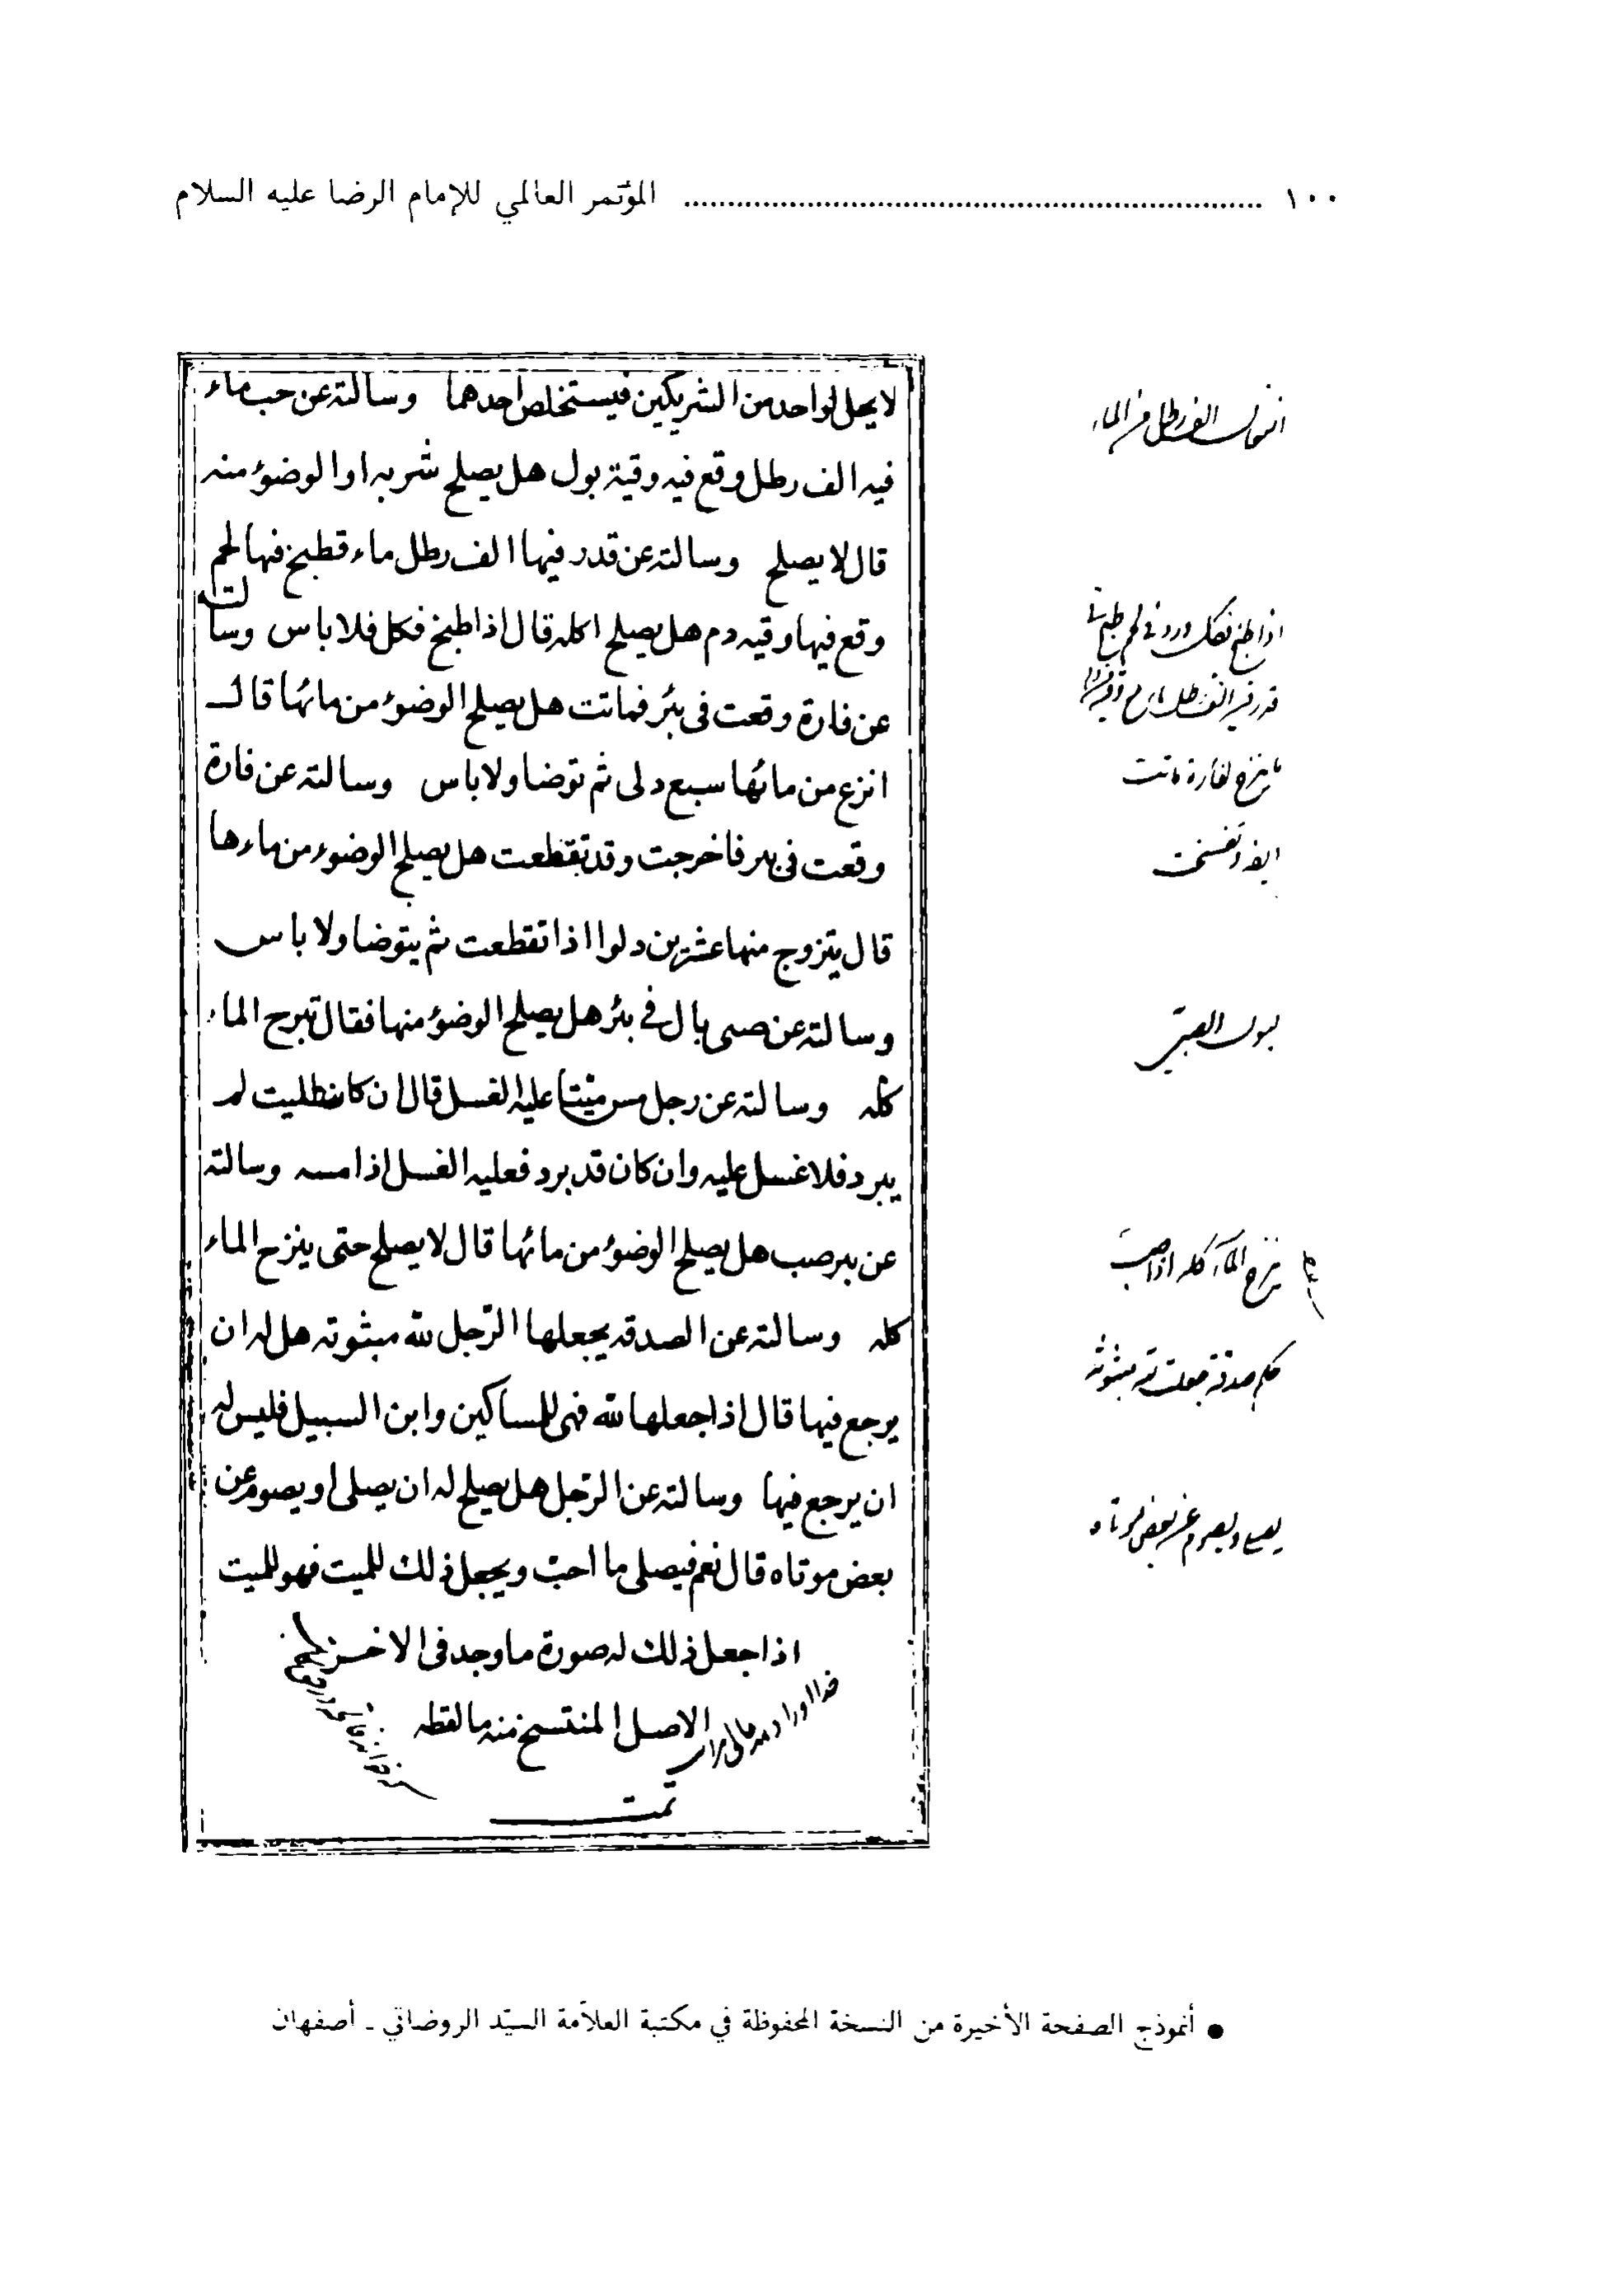 ١٠٠ ................................................................ المؤتمر العالمي للإمام الرضا عليه السلام
لا يحل لواحد من الشريكين فيستخلص احدهما وسالته عن حب ماء
فيه الف رطل وقع فيه وقية بول هل يصلح شربه او الوضوء منه
قال لا يصلح وسالته عن قدر فيها الف رطل ماء قطبخ فيها لحم
وقع فيها وقيه دم هل يصلح اكله قال اذا طبخ فكل فلا باس وسالته
عن فارة وقعت فى بئر فماتت هل يصلح الوضوء من مائها قال
انزع من مائها سبع دلى ثم توضا ولا باس وسالته عن فارة
وقعت فى بير فاخرجت وقد تقطعت هل يصلح الوضوء من ماءها
قال يتزوج منها عشرين دلوا اذا تقطعت ثم يتوضا ولا باس
وسالته عن صبى بال في بئر هل يصلح الوضوء منها فقال الماء
كله وسالته عن رجل مس ميتا عليه الغسل قال ان كان لم
يبرد فلا غسل عليه وان كان قد برد فعليه الغسل اذا مسه وسالته
عن بير صب هل يصلح الوضوء من مائها قال لا يصلح حتى ينزح الماء
كله وسالته عن الصدقه يجعلها الرّجل لله مبثوته هل له ان
يرجع فيها قال اذا جعلها لله فهى للمساكين وابن السبيل فليس له
ان يرجع فيها وسالته عن الرّجل هل يصلح له ان يصلى او يصوم عن
بعض موتاه قال نعم فيصلى ما احبّ ويجعل ذلك للميت فهو للميت
اذا جعل ذلك له صورة ما وجد فى الاخر
الاصل المنتسخ منه ما لفظه
تمت
الف رطل من الماء
ينزح لفارة ماتت
وتفسخت
لبول الصبي
ينزح الماء كله اذا صب
حكم صدقة جعلت لله مبثوثة
يصلي ويصوم عن بعض موتاه
● أنموذج الصفحة الأخيرة من النسخة المحفوظة في مكتبة العلاّمة السيّد الروضاتي ـ أصفهان